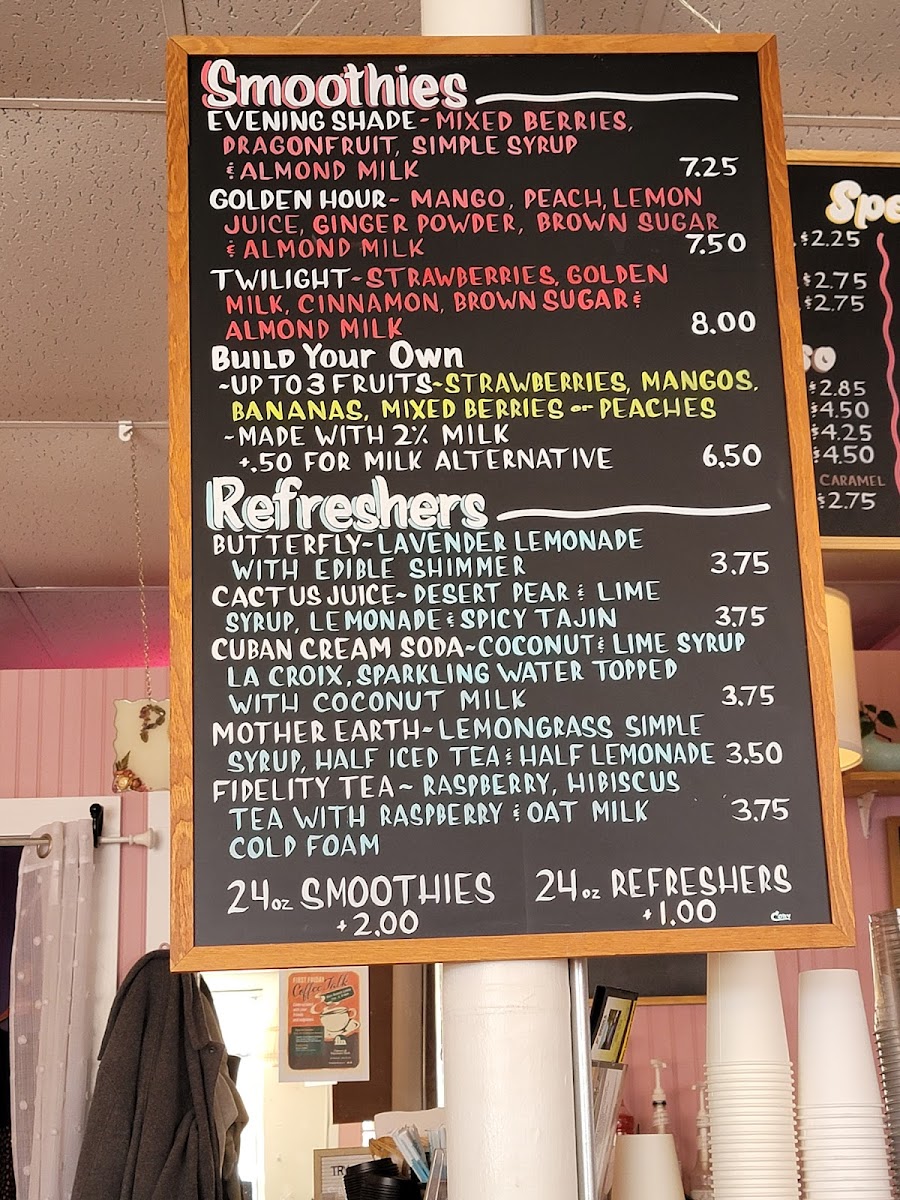 Smoothies
EVENING SHADE~MIXED BERRIES,
DRAGONFRUIT, SIMPLE SYRUP
& ALMOND MILK 7.25
GOLDEN HOUR~ MANGO, PEACH, LEMON
JUICE, GINGER POWDER, BROWN SUGAR
& ALMOND MILK 7.50
TWILIGHT~STRAWBERRIES, GOLDEN
MILK, CINNAMON, BROWN SUGAR &
ALMOND MILK 8.00
BUILD YOUR OWN
~UP TO 3 FRUITS~STRAWBERRIES, MANGOS,
BANANAS, MIXED BERRIES or PEACHES
~MADE WITH 2% MILK
+.50 FOR MILK ALTERNATIVE 6.50
Refreshers
BUTTERFLY~LAVENDER LEMONADE
WITH EDIBLE SHIMMER 3.75
CACTUS JUICE~ DESERT PEAR & LIME
SYRUP, LEMONADE & SPICY TAJIN 3.75
CUBAN CREAM SODA~COCONUT & LIME SYRUP
LA CROIX, SPARKLING WATER TOPPED
WITH COCONUT MILK 3.75
MOTHER EARTH~LEMONGRASS SIMPLE
SYRUP, HALF ICED TEA & HALF LEMONADE 3.50
FIDELITY TEA~ RASPBERRY, HIBISCUS
TEA WITH RASPBERRY & OAT MILK 3.75
COLD FOAM
24oz SMOOTHIES 24oz REFRESHERS
+2.00 +1.00
Spe
$2.25
$2.75
$2.75
so
$2.85
$4.50
$4.25
$4.50
CARAMEL
$2.75
FIRST FRIDAY
Coffee Talk
TR